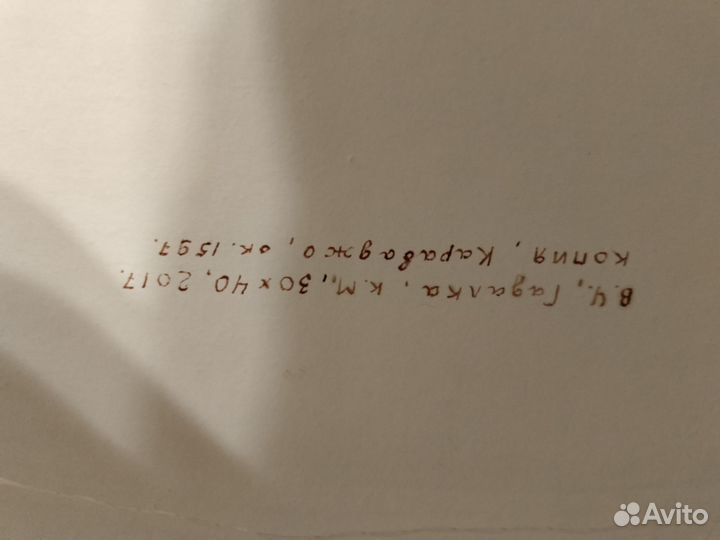 В.Ч., Гадалка, к.м., 30×40, 2017.
копия, Караваджо, ок. 1597.
Avito